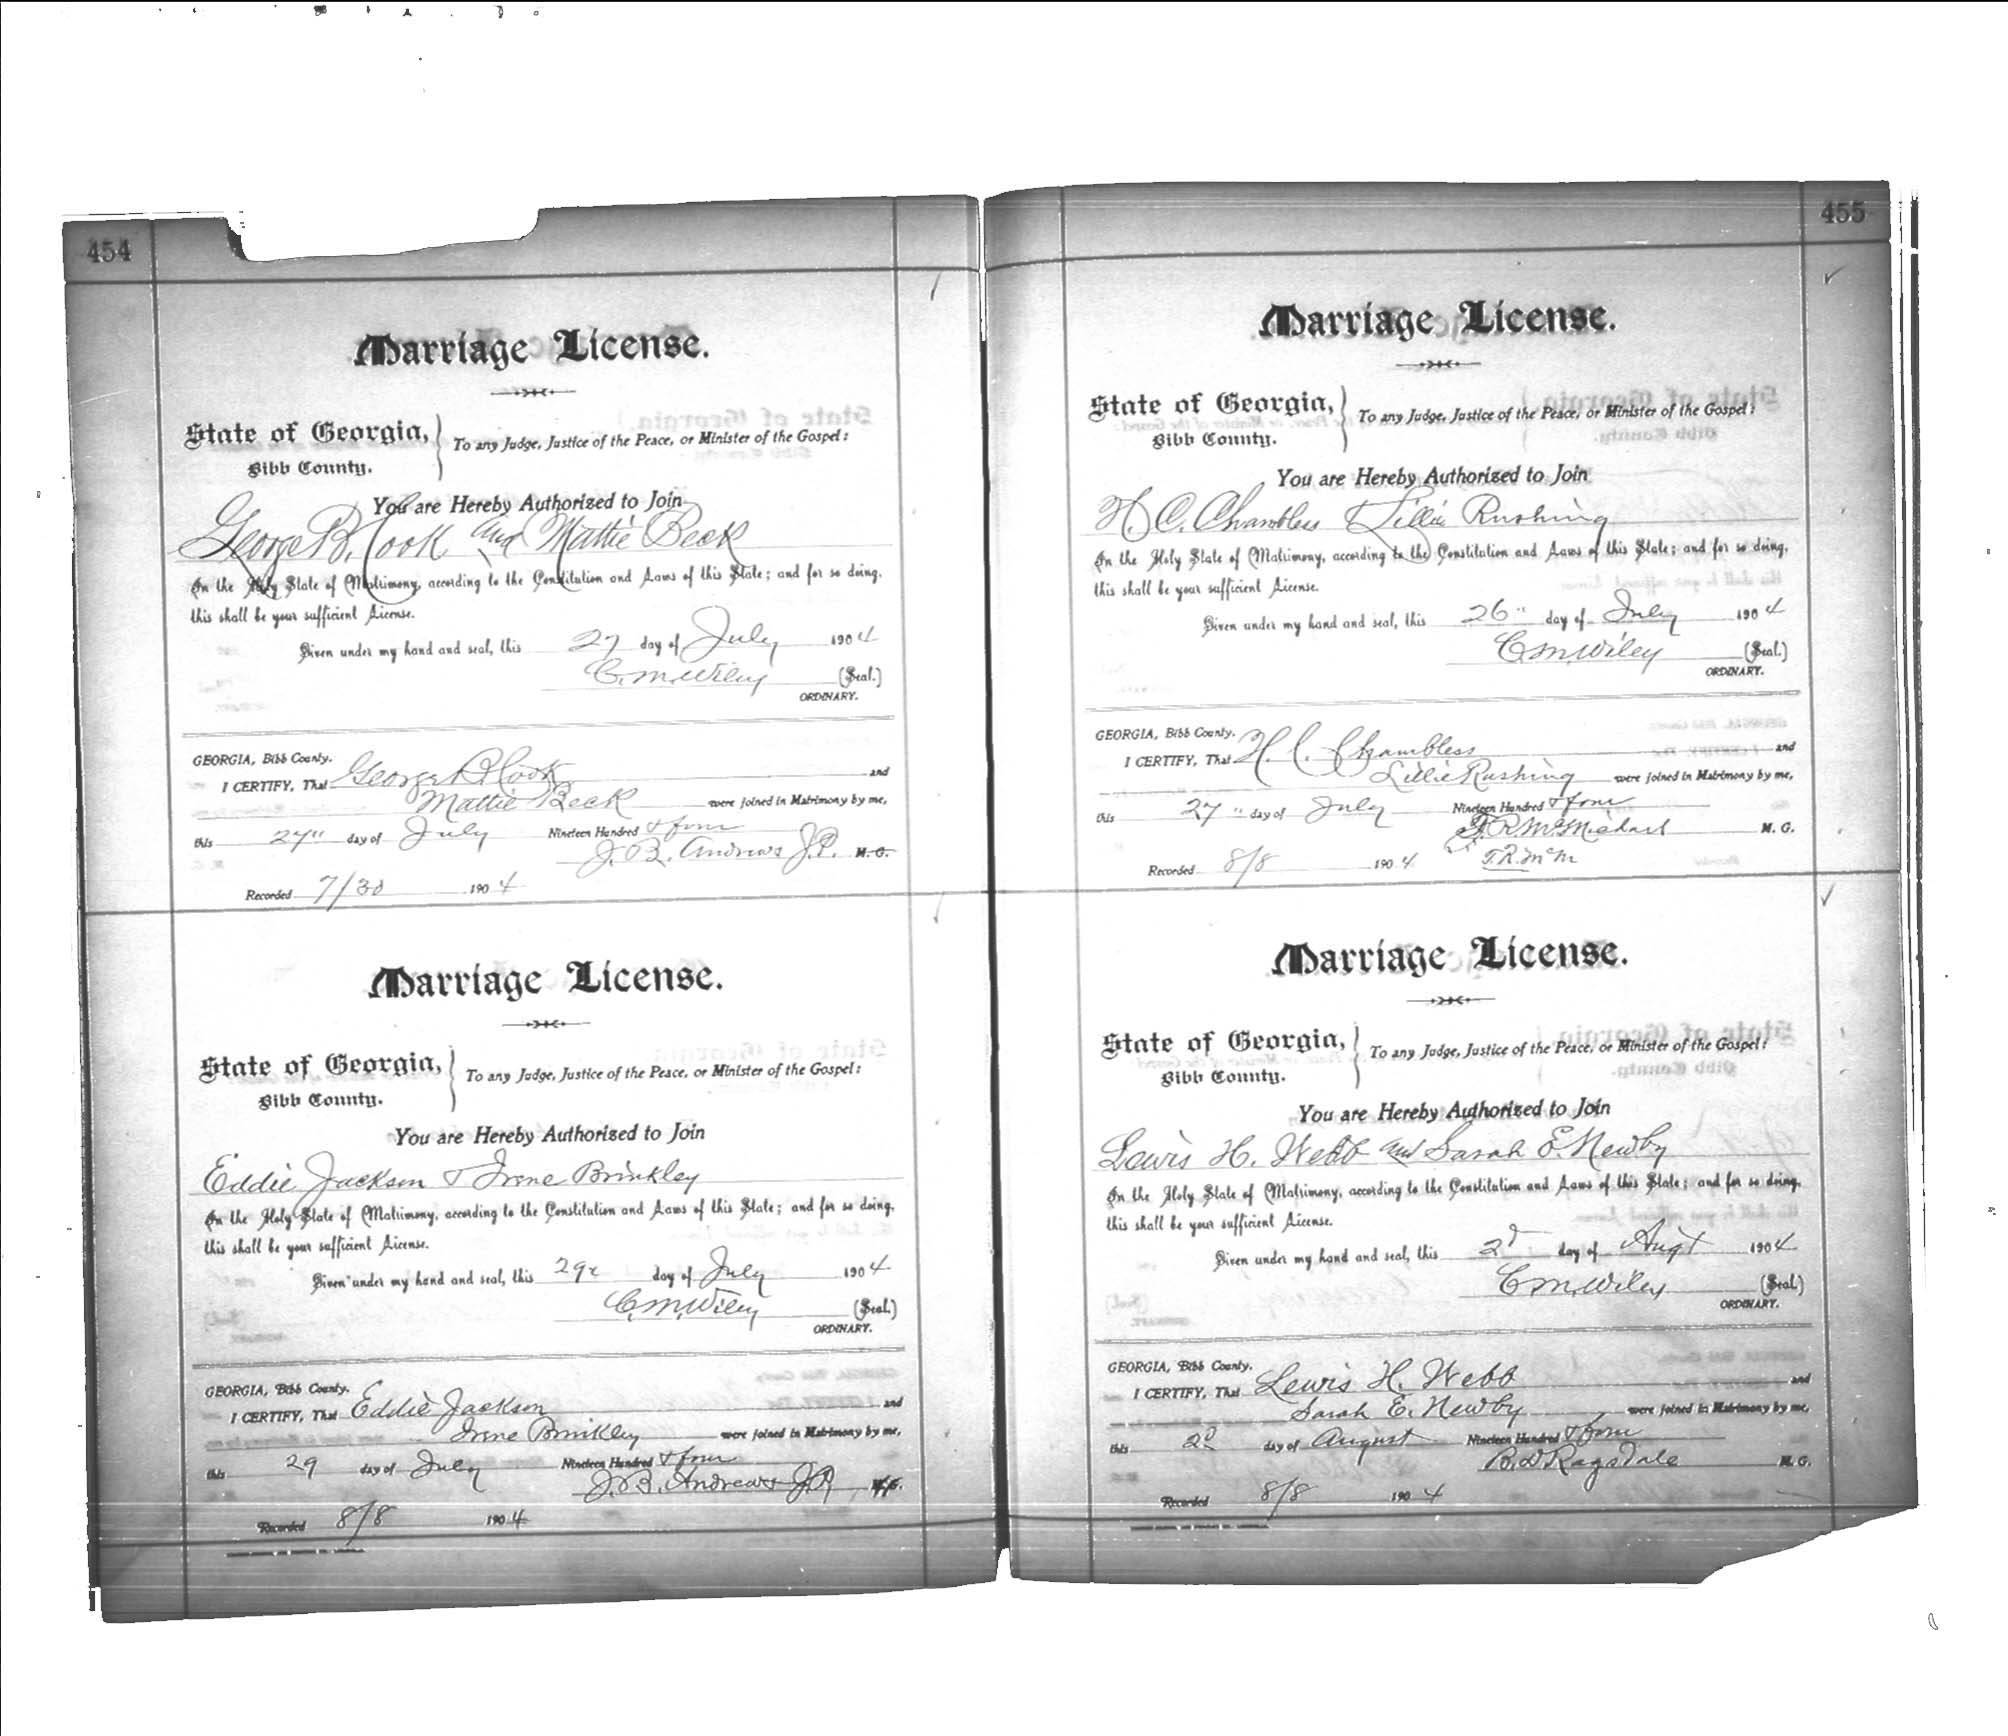 454
Marriage License.
State of Georgia,
Bibb County.
To any Judge, Justice of the Peace, or Minister of the Gospel:
You are Hereby Authorized to Join
George B. Cook and Mattie Beck
In the Holy State of Matrimony, according to the Constitution and Laws of this State; and for so doing,
this shall be your sufficient License.
Given under my hand and seal, this 27 day of July 1904
C. M. Wiley (Seal.)
ORDINARY.
GEORGIA, Bibb County.
I CERTIFY, That George B Cook and
Mattie Beck were joined in Matrimony by me,
this 27" day of July Nineteen Hundred & four
J. B. Andrews J.P. M. G.
Recorded 7/30 1904
Marriage License.
State of Georgia,
Bibb County.
To any Judge, Justice of the Peace, or Minister of the Gospel:
You are Hereby Authorized to Join
Eddie Jackson & Irene Brinkley
In the Holy State of Matrimony, according to the Constitution and Laws of this State; and for so doing,
this shall be your sufficient License.
Given under my hand and seal, this 29 day of July 1904
C. M. Wiley (Seal.)
ORDINARY.
GEORGIA, Bibb County.
I CERTIFY, That Eddie Jackson and
Irene Brinkley were joined in Matrimony by me,
this 29 day of July Nineteen Hundred & four
J. B. Andrews J.P. M. G.
Recorded 8/8 1904
455
Marriage License.
State of Georgia,
Bibb County.
To any Judge, Justice of the Peace, or Minister of the Gospel:
You are Hereby Authorized to Join
H. C. Chambless & Lillie Rushing
In the Holy State of Matrimony, according to the Constitution and Laws of this State; and for so doing,
this shall be your sufficient License.
Given under my hand and seal, this 26" day of July 1904
C. M. Wiley (Seal.)
ORDINARY.
GEORGIA, Bibb County.
I CERTIFY, That H. C. Chambless and
Lillie Rushing were joined in Matrimony by me,
this 27" day of July Nineteen Hundred & four
T. R. McMichael M. G.
T. R. McM
Recorded 8/8 1904
Marriage License.
State of Georgia,
Bibb County.
To any Judge, Justice of the Peace, or Minister of the Gospel:
You are Hereby Authorized to Join
Lewis H. Webb and Sarah E. Newby
In the Holy State of Matrimony, according to the Constitution and Laws of this State; and for so doing,
this shall be your sufficient License.
Given under my hand and seal, this 2d day of Augt 1904
C. M. Wiley (Seal.)
ORDINARY.
GEORGIA, Bibb County.
I CERTIFY, That Lewis H. Webb and
Sarah E. Newby were joined in Matrimony by me,
this 2d day of August Nineteen Hundred & four
B. D Ragsdale M. G.
Recorded 8/8 1904